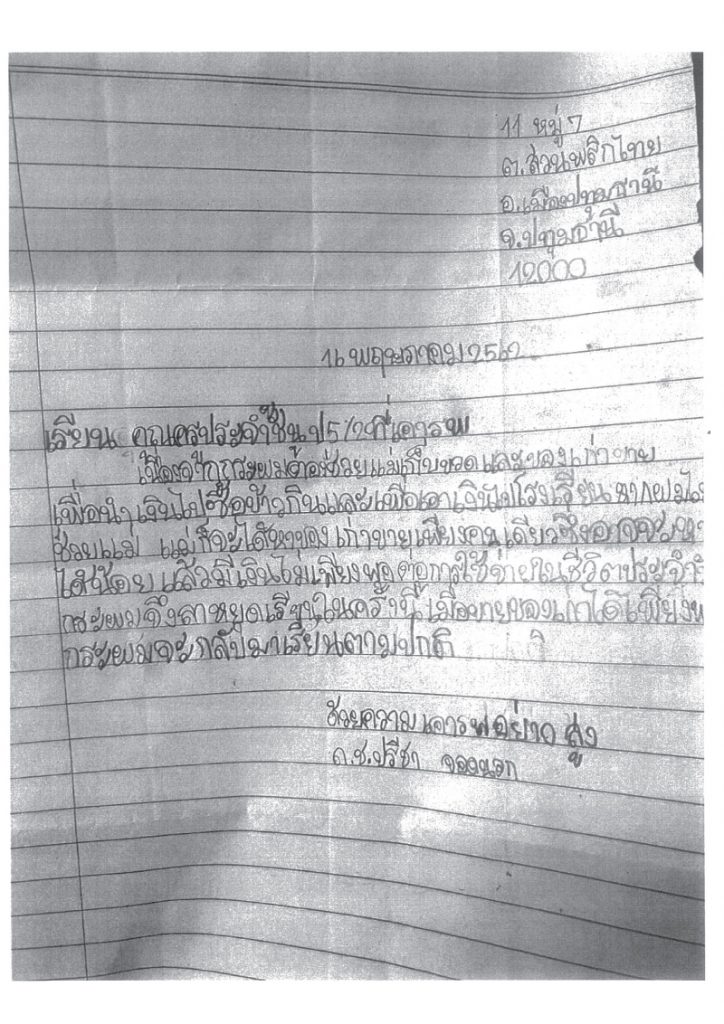 11 หมู่ 7
ต.สวนพลิกไทย
อ.เมืองปทุมธานี
จ.ปทุมธานี
12000
16 พฤษภาคม 2562
เรียน คุณครูประจำชั้น ป5/2 ที่เคารพ
เนื่องจากกระผมต้องช่วยแม่เก็บขวดและของเก่าขาย
เพื่อนำเงินไปซื้อข้าวกินและเพื่อเอาเงินไปโรงเรียน หากผมไม่
ช่วยแม่ แม่ก็จะได้หาของเก่าขายเพียงคนเดียวซึ่งอาจจะ
ได้น้อย แล้วมีเงินไม่เพียงพอต่อการใช้จ่ายในชีวิตประจำ
กระผมจึงลาหยุดเรียนในครั้งนี้ เมื่อขายของเก่าได้เพียง
กระผมจะกลับมาเรียนตามปกติ
ด้วยความเคารพอย่างสูง
ด.ช.ปรีชา